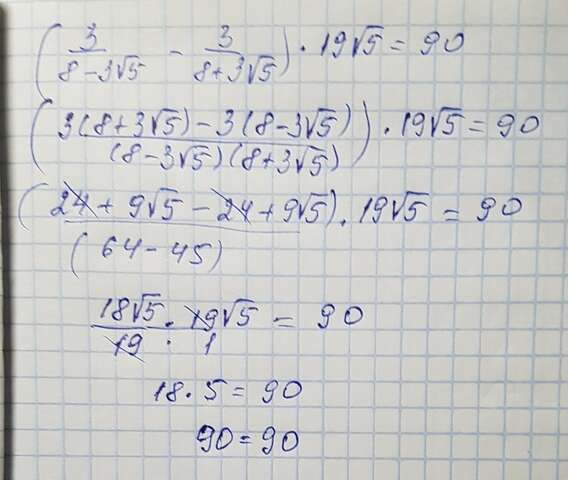 (3/(8-3√5) - 3/(8+3√5)) · 19√5 = 90
(3(8+3√5)-3(8-3√5))/((8-3√5)(8+3√5)) · 19√5 = 90
(24+9√5-24+9√5)/(64-45) · 19√5 = 90
18√5/19 · 19√5/1 = 90
18·5=90
90=90